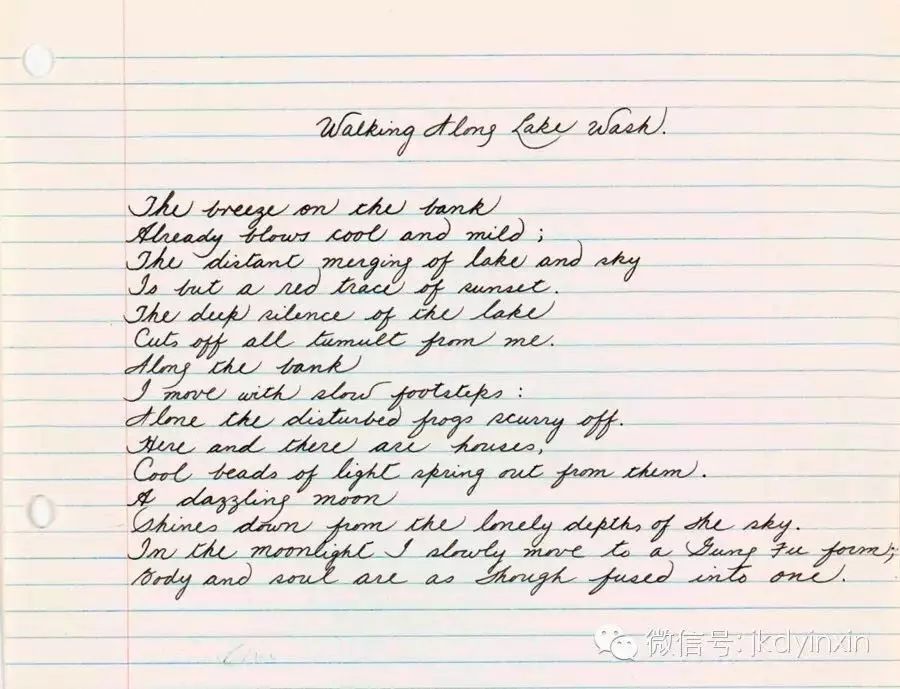 Walking Along Lake Wash.
The breeze on the bank
Already blows cool and mild;
The distant merging of lake and sky
Is but a red trace of sunset.
The deep silence of the lake
Cuts off all tumult from me.
Along the bank
I move with slow footsteps:
Alone the disturbed frogs scurry off.
Here and there are houses,
Cool beads of light spring out from them.
A dazzling moon
Shines down from the lonely depths of the sky.
In the moonlight I slowly move to a Gung Fu form;
Body and soul are as though fused into one.
微信号: jkdyinxin